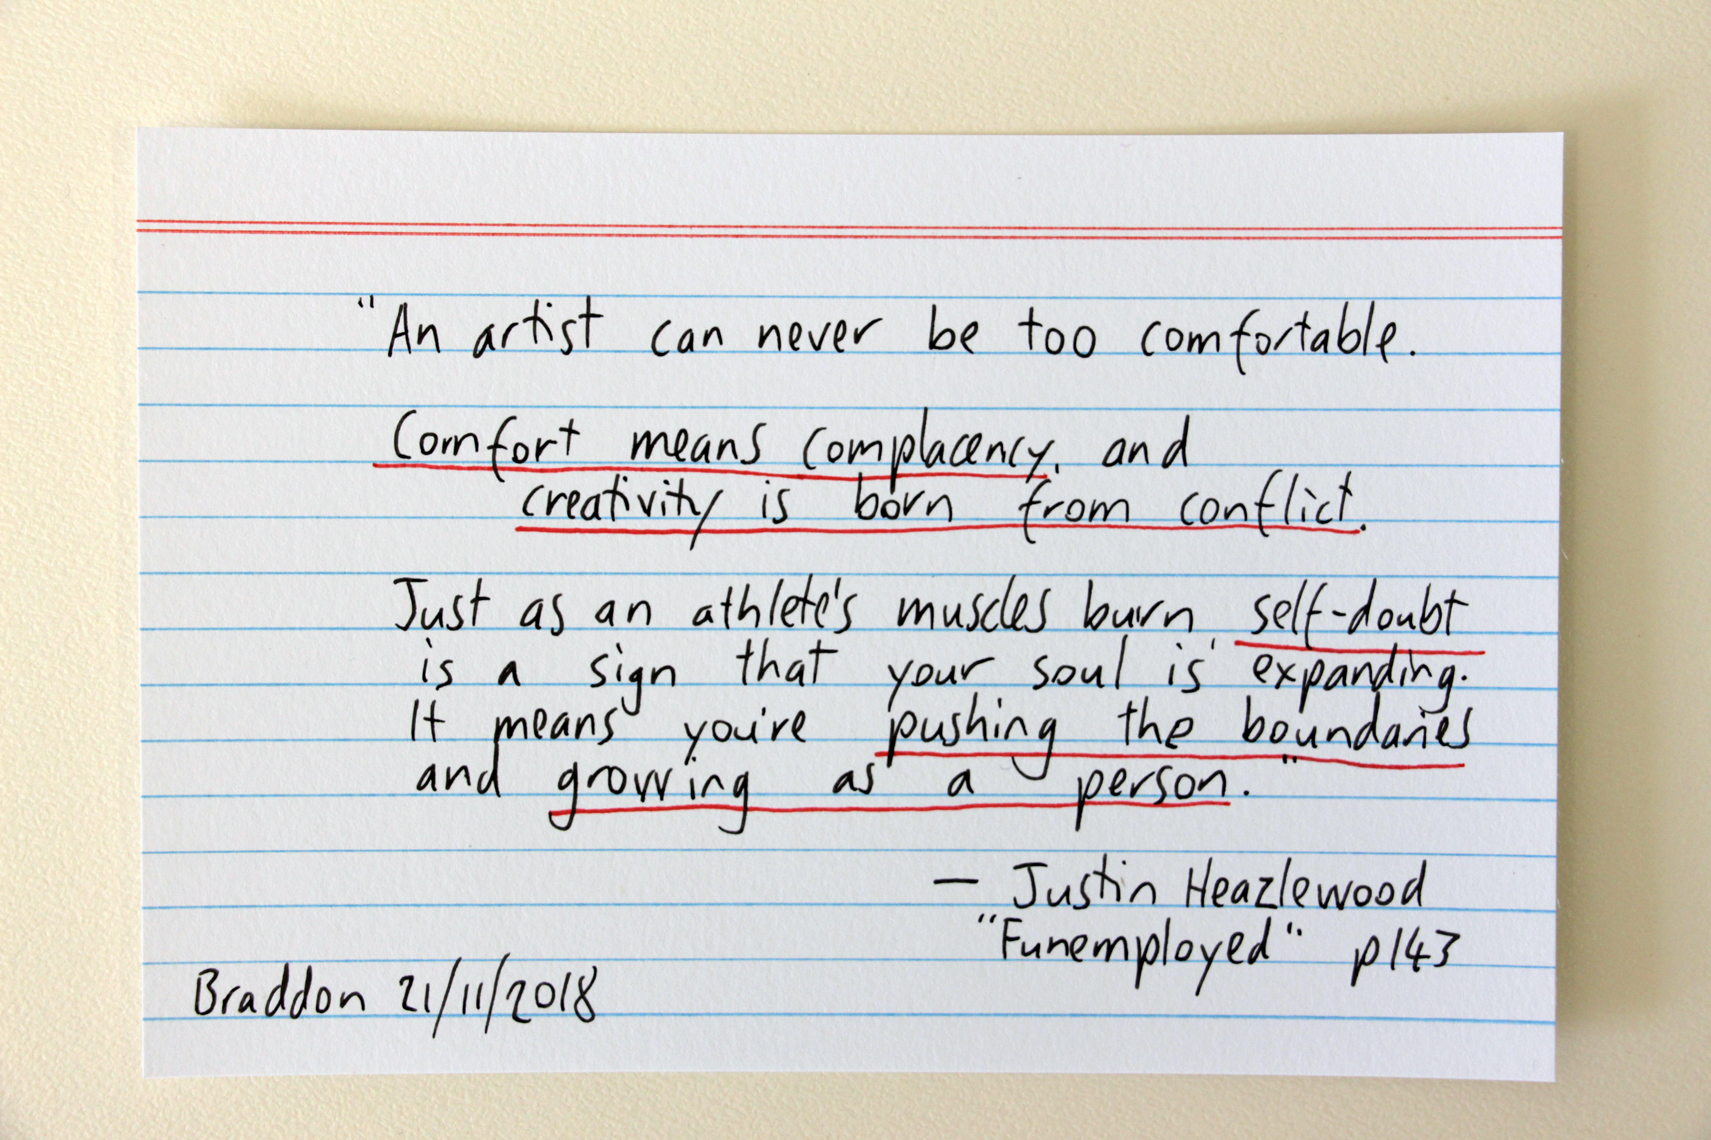 "An artist can never be too comfortable.
Comfort means complacency, and
creativity is born from conflict.
Just as an athlete's muscles burn, self-doubt
is a sign that your soul is expanding.
It means you're pushing the boundaries
and growing as a person."
— Justin Heazlewood
"Funemployed" p143
Braddon 21/11/2018